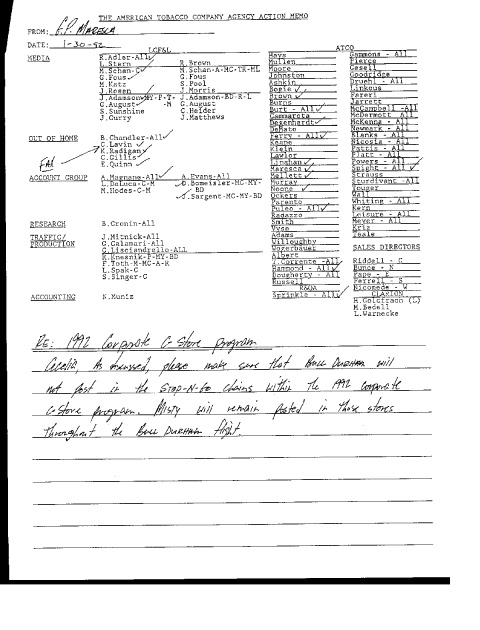 THE AMERICAN TOBACCO COMPANY AGENCY ACTION MEMO
FROM: E.P. Maresca
DATE: 1-30-92
LCF&L
ATCO
MEDIA
R.Adler-All
L.Stern R.Brown
M.Schan-C M.Schan-A-MC-TR-ML
G.Fous G.Fous
M.Katz S.Pool
J.Rosen J.Morris
J.Adamson-MY-P-T- J.Adamson-BD-R-L
C.August -M C.August
S.Sunshine C.Heider
J.Curry J.Matthews
OUT OF HOME B.Chandler-All
C.Lavin
K.Radigan
C.Gillis
E.Quinn
FAX
ACCOUNT GROUP A.Magnane-All A.Evans-All
L.DeLuca-C-M D.Bomeisler-MC-MY-BD
M.Hodes-C-M J.Sargent-MC-MY-BD
RESEARCH B.Cronin-All
TRAFFIC/ PRODUCTION
J.Mitnick-All
G.Calamari-All
G.Lisciandrello-ALL
R.Knesnik-P-MY-BD
F.Toth-M-MC-A-R
L.Spak-C
S.Singer-C
ACCOUNTING K.Kuniz
Hays
Mullen
Moore
Johnston
Ashkin
Bogie
Brown
Burns
Burt - All
Cammarota
Degenhardt
DeMato
Ferry - All
Keane
Klein
Lawlor
Linehan
Maresca
Mellett
Murray
Neone
Ockers
Parento
Puleo - All
Ragazzo
Smith
Vyse
Adams
Willoughby
Wogerbauer
Albert
T.Corrente -All
Hammond - All
Dougherty - All
Russell
R&QA
Sprinkle - All
Gammons - All
Pierce
Gesell
Goodridge
Bruehl - All
Linkous
Fereri
Jarrett
McCampbell -All
McDermott All
McKenna - All
Newmark - All
Klanks - All
Nicosia - All
Pattis - All
Platt - All
Powers - All
Sgight - All
Strauss
Sturdivant -All
Youger
Wall
Whiting - All
Kern
Leisure - All
Meyer - All
Kriz
Teale
SALES DIRECTORS
Riddell - C
Bunce - N
Pape - E
Ferrell - S
Nicomede - W
CLARION
H.Goldfraon (L)
M.Bedell
L.Warnecke
RE: 1992 Corporate C-Store program
Cecelia, As discussed, please make sure that Bull Durham will
not post in the Stop-N-Go chains within the 1992 corporate
C-Store program. Misty will remain posted in those stores
throughout the Bull Durham flight.